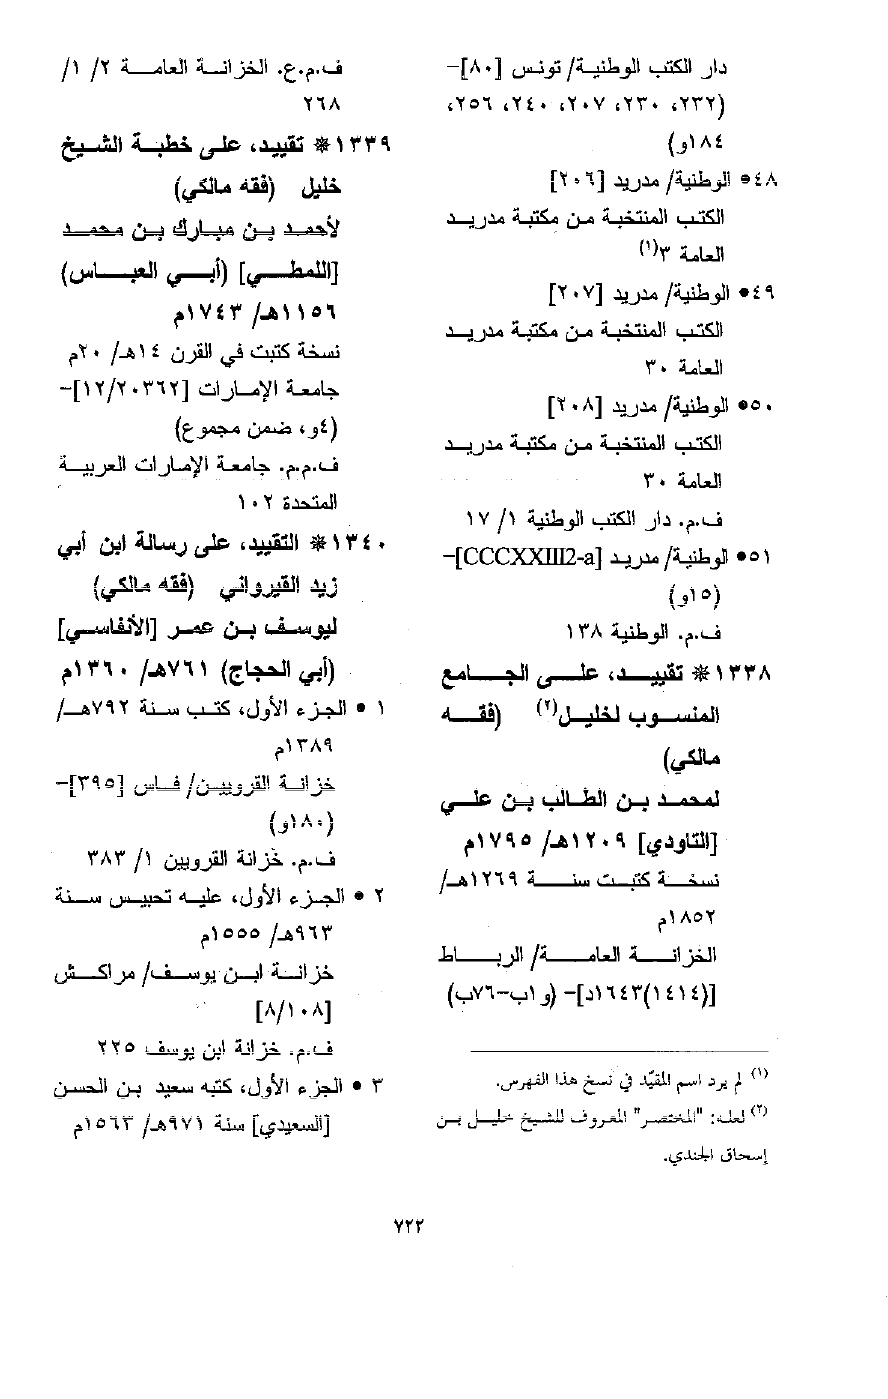 دار الكتب الوطنية/ تونس [٨٠]–
(٢٣٢، ٢٣٠، ٢٠٧، ٢٤٠، ٢٥٦،
١٨٤و)
٤٨• الوطنية/ مدريد [٢٠٦]
الكتب المنتخبة من مكتبة مدريد
العامة ٣(١)
٤٩• الوطنية/ مدريد [٢٠٧]
الكتب المنتخبة من مكتبة مدريد
العامة ٣٠
٥٠• الوطنية/ مدريد [٢٠٨]
الكتب المنتخبة من مكتبة مدريد
العامة ٣٠
ف.م. دار الكتب الوطنية ١/ ١٧
٥١• الوطنية/ مدريد [CCCXXIII2-a]–
(١٥و)
ف.م. الوطنية ١٣٨
١٣٣٨* تقييد، على الجامع
المنسوب لخليل(٢) (فقه
مالكي)
لمحمد بن الطالب بن علي
[التاودي] ١٢٠٩هـ/ ١٧٩٥م
نسخة كتبت سنة ١٢٦٩هـ/
١٨٥٢م
الخزانة العامة/ الرباط
[(١٤١٤)١٦٤٣د]– (و١ب–٧٦ب)
(١) لم يرد اسم المقيّد في نسخ هذا الفهرس.
(٢) لعله: "المختصر" المعروف للشيخ خليل بن
إسحاق الجندي.
ف.م.ع. الخزانة العامة ٢/ ١/
٢٦٨
١٣٣٩* تقييد، على خطبة الشيخ
خليل (فقه مالكي)
لأحمد بن مبارك بن محمد
[اللمطي] (أبي العباس)
١١٥٦هـ/ ١٧٤٣م
نسخة كتبت في القرن ١٤هـ/ ٢٠م
جامعة الإمارات [١٢/٢٠٣٦٢]–
(٤و، ضمن مجموع)
ف.م.م. جامعة الإمارات العربية
المتحدة ١٠٢
١٣٤٠* التقييد، على رسالة ابن أبي
زيد القيرواني (فقه مالكي)
ليوسف بن عمر [الأنفاسي]
(أبي الحجاج) ٧٦١هـ/ ١٣٦٠م
١ • الجزء الأول، كتب سنة ٧٩٢هـ/
١٣٨٩م
خزانة القرويين/ فاس [٣٩٥]–
(١٨٠و)
ف.م. خزانة القرويين ١/ ٣٨٣
٢ • الجزء الأول، عليه تحبيس سنة
٩٦٣هـ/ ١٥٥٥م
خزانة ابن يوسف/ مراكش
[٨/١٠٨]
ف.م. خزانة ابن يوسف ٢٢٥
٣ • الجزء الأول، كتبه سعيد بن الحسن
[السعيدي] سنة ٩٧١هـ/ ١٥٦٣م
٧٢٢